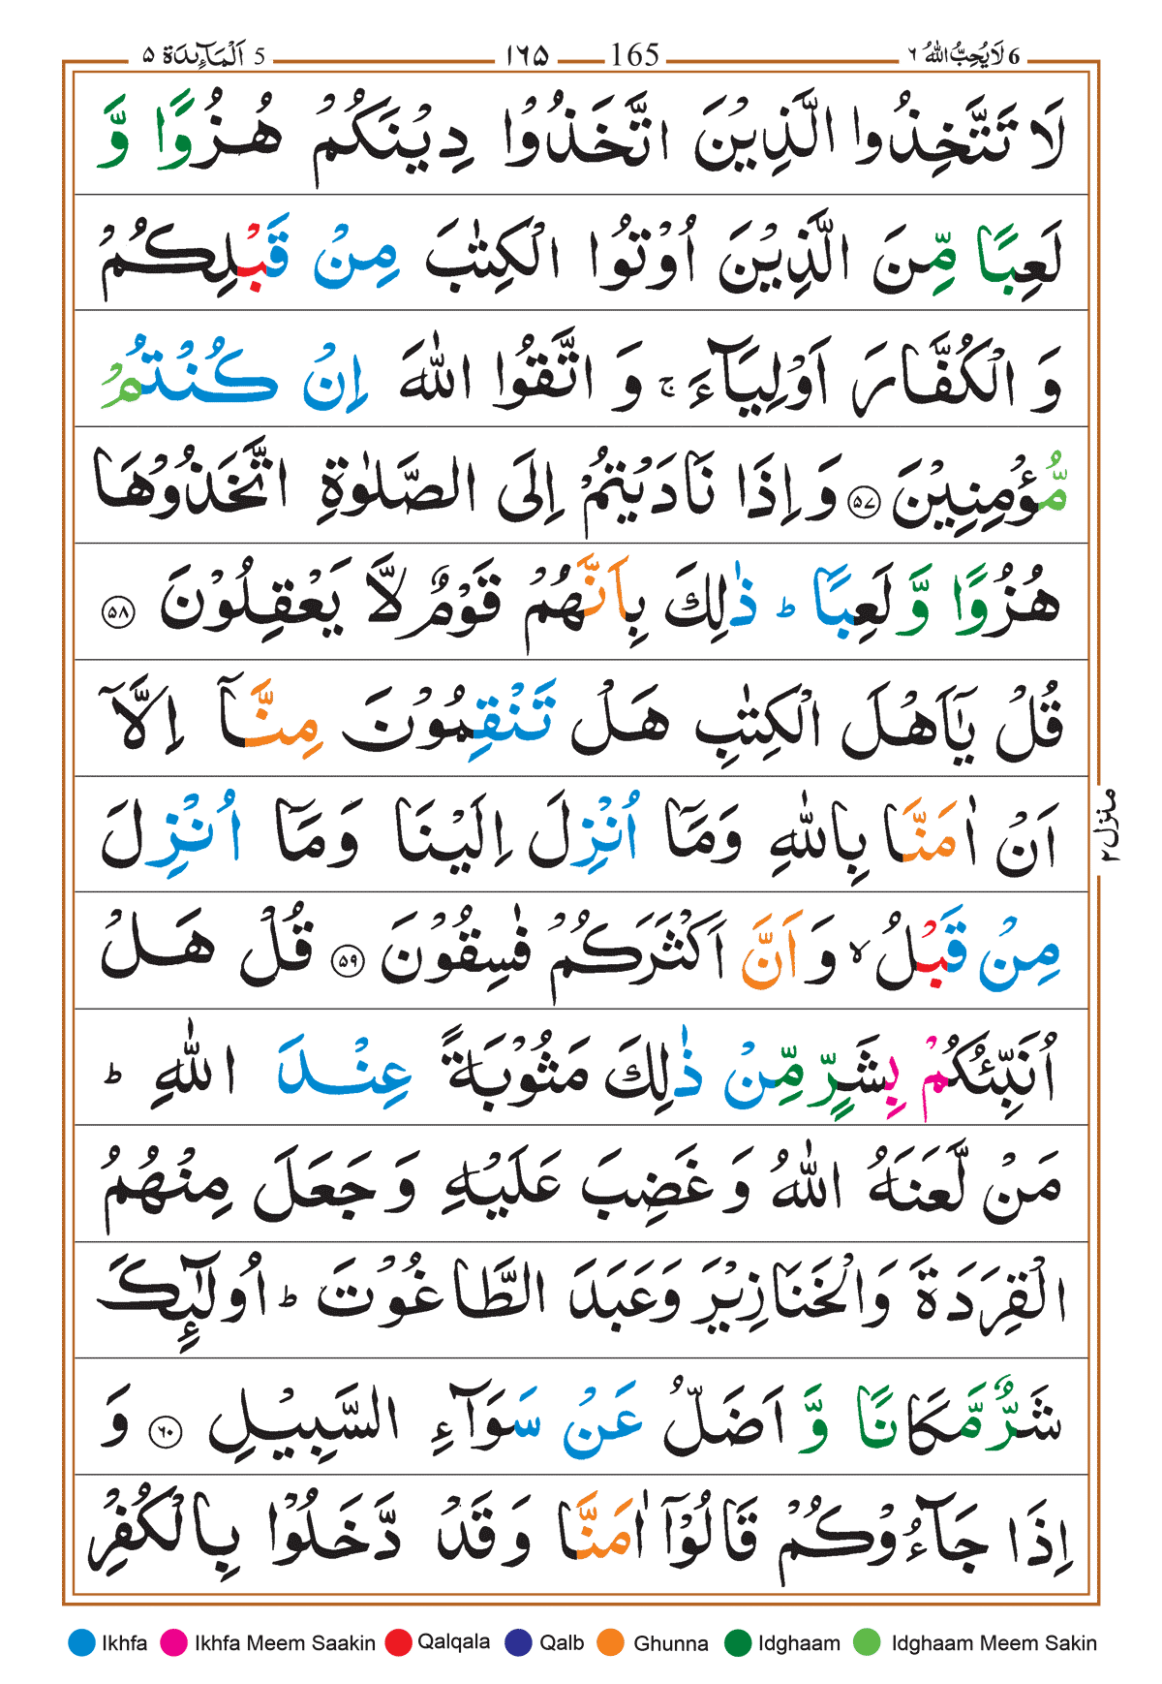 6 لَا یُحِبُّ اللہُ ٦ 165 ١٦٥ 5 اَلْمَآئِدَة ٥
لَا تَتَّخِذُوا الَّذِيْنَ اتَّخَذُوْا دِيْنَكُمْ هُزُوًا وَّ
لَعِبًا مِّنَ الَّذِيْنَ اُوْتُوا الْكِتٰبَ مِنْ قَبْلِكُمْ
وَ الْكُفَّارَ اَوْلِيَآءَ ۚ وَ اتَّقُوا اللّٰهَ اِنْ كُنْتُمْ
مُّؤْمِنِيْنَ ﴿۵۷﴾ وَ اِذَا نَادَيْتُمْ اِلَى الصَّلٰوةِ اتَّخَذُوْهَا
هُزُوًا وَّ لَعِبًا ؕ ذٰلِكَ بِاَنَّهُمْ قَوْمٌ لَّا يَعْقِلُوْنَ ﴿۵۸﴾
قُلْ يٰۤاَهْلَ الْكِتٰبِ هَلْ تَنْقِمُوْنَ مِنَّاۤ اِلَّاۤ
اَنْ اٰمَنَّا بِاللّٰهِ وَمَاۤ اُنْزِلَ اِلَيْنَا وَمَاۤ اُنْزِلَ
مِنْ قَبْلُ ۙ وَ اَنَّ اَكْثَرَكُمْ فٰسِقُوْنَ ﴿۵۹﴾ قُلْ هَلْ
اُنَبِّئُكُمْ بِشَرٍّ مِّنْ ذٰلِكَ مَثُوْبَةً عِنْدَ اللّٰهِ ؕ
مَنْ لَّعَنَهُ اللّٰهُ وَ غَضِبَ عَلَيْهِ وَ جَعَلَ مِنْهُمُ
الْقِرَدَةَ وَالْخَنَازِيْرَ وَعَبَدَ الطَّاغُوْتَ ؕ اُولٰٓئِكَ
شَرٌّ مَّكَانًا وَّ اَضَلُّ عَنْ سَوَآءِ السَّبِيْلِ ﴿۶۰﴾ وَ
اِذَا جَآءُوْكُمْ قَالُوْۤا اٰمَنَّا وَ قَدْ دَّخَلُوْا بِالْكُفْرِ
منزل ٢
Ikhfa Ikhfa Meem Saakin Qalqala Qalb Ghunna Idghaam Idghaam Meem Sakin